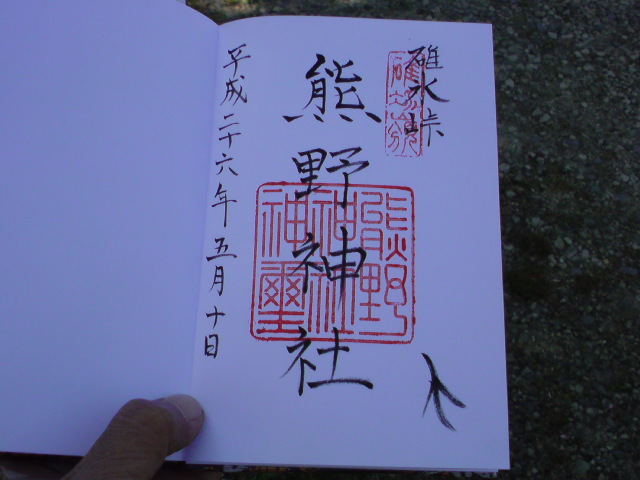 碓水峠
碓氷嶺
熊野神社
熊野
神社
神璽
平成二十六年五月十日